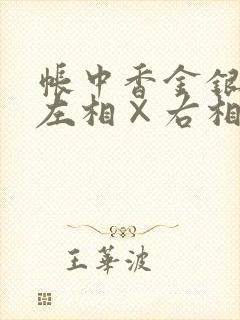 帳中香金銀
左相×右相
王華波